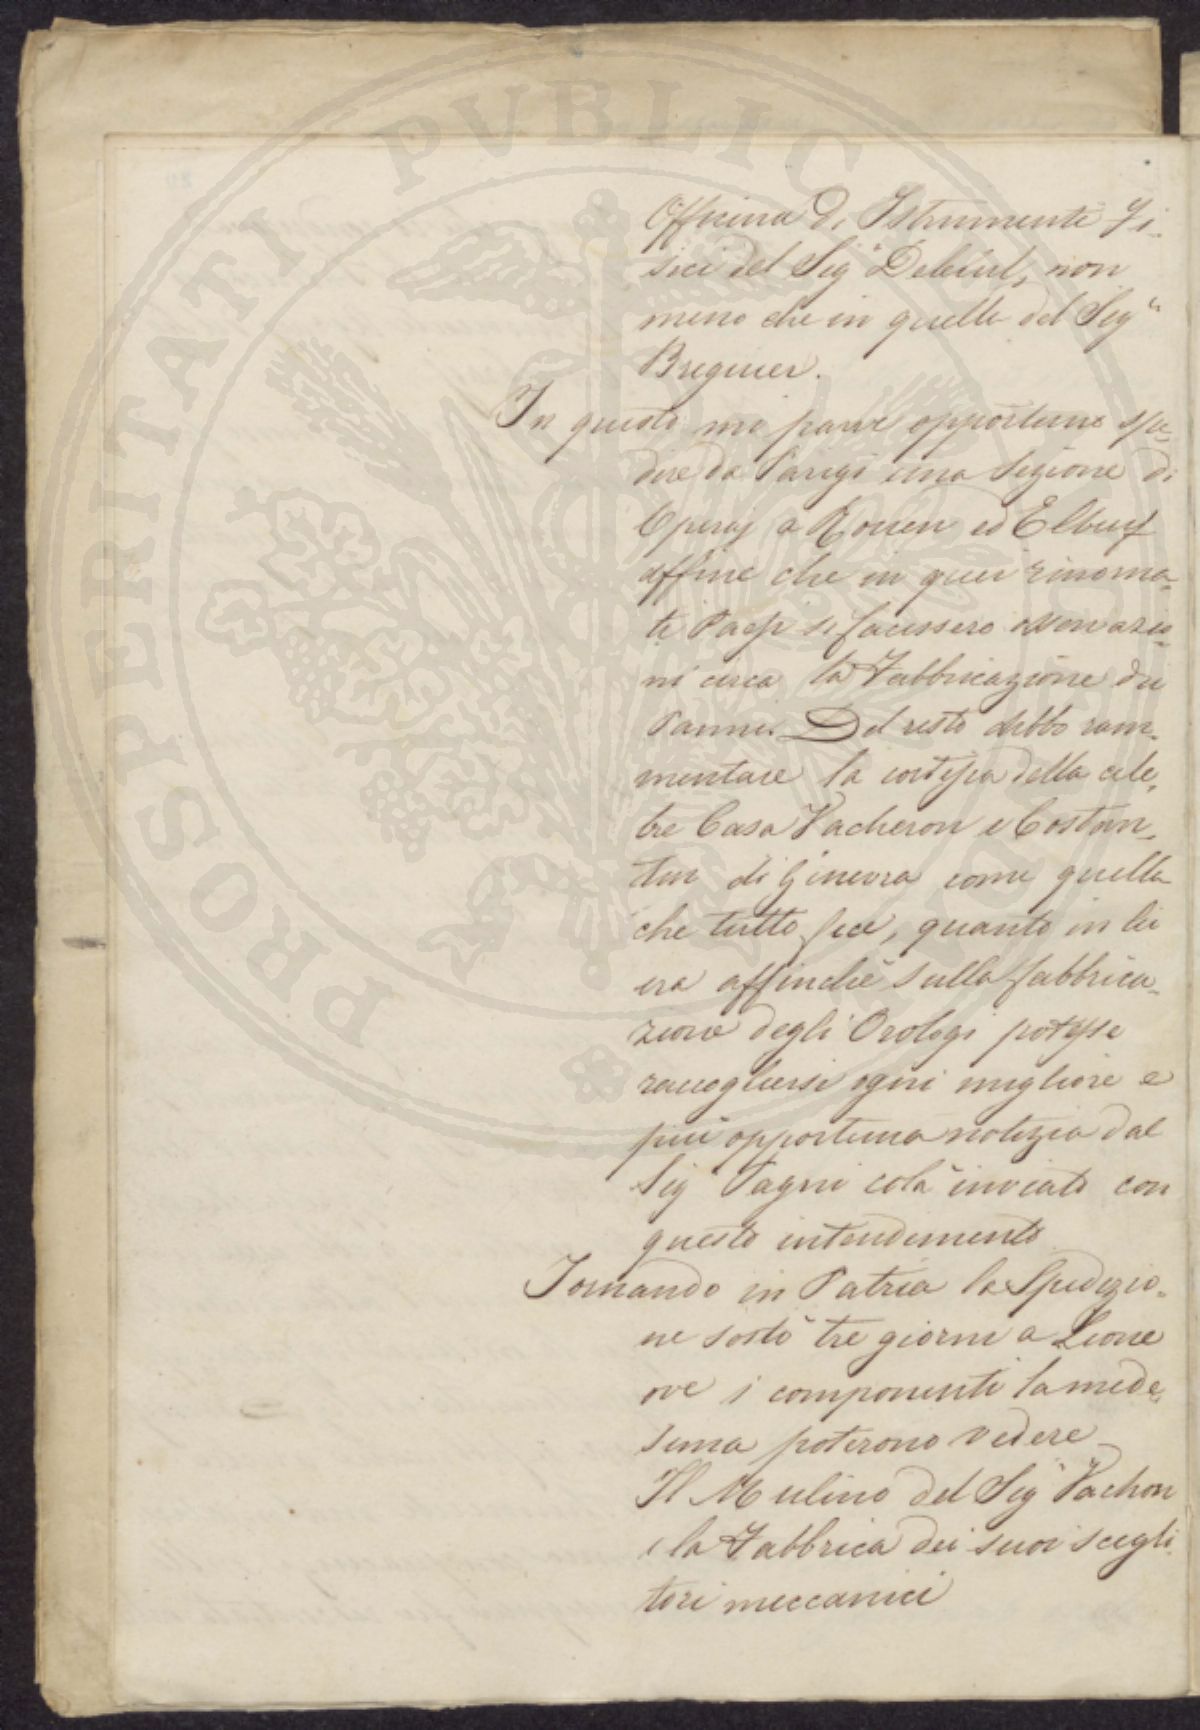 PROSPERITATI PVBLICAE
Officina di Istrumenti Fi-
sici del Sig.r Deleuil, non
meno che in quella del Sig.r
Breguer.
In questo mi parve opportuno spe-
dire da Parigi una Sezione di
Operaj a Rouen ed Elbeuf
affine che in quei rinoma-
ti Paesi si facessero osservazio-
ni circa la Fabbricazione dei
Panni. Del resto debbo ram-
mentare la cortesia della cele-
bre Casa Vacheron e Costan-
tin di Ginevra come quella
che tutto fece, quanto in lei
era affinchè sulla fabbrica-
zione degli Orologi potesse
raccogliersi ogni migliore e
più opportuna notizia dal
Sig.r Pagni colà inviato con
questo intendimento
Tornando in Patria la Spedizio-
ne sostò tre giorni a Lione
ove i componenti la mede-
sima poterono vedere
Il Mulino del Sig.r Vachon
e la Fabbrica dei suoi scegli-
tori meccanici